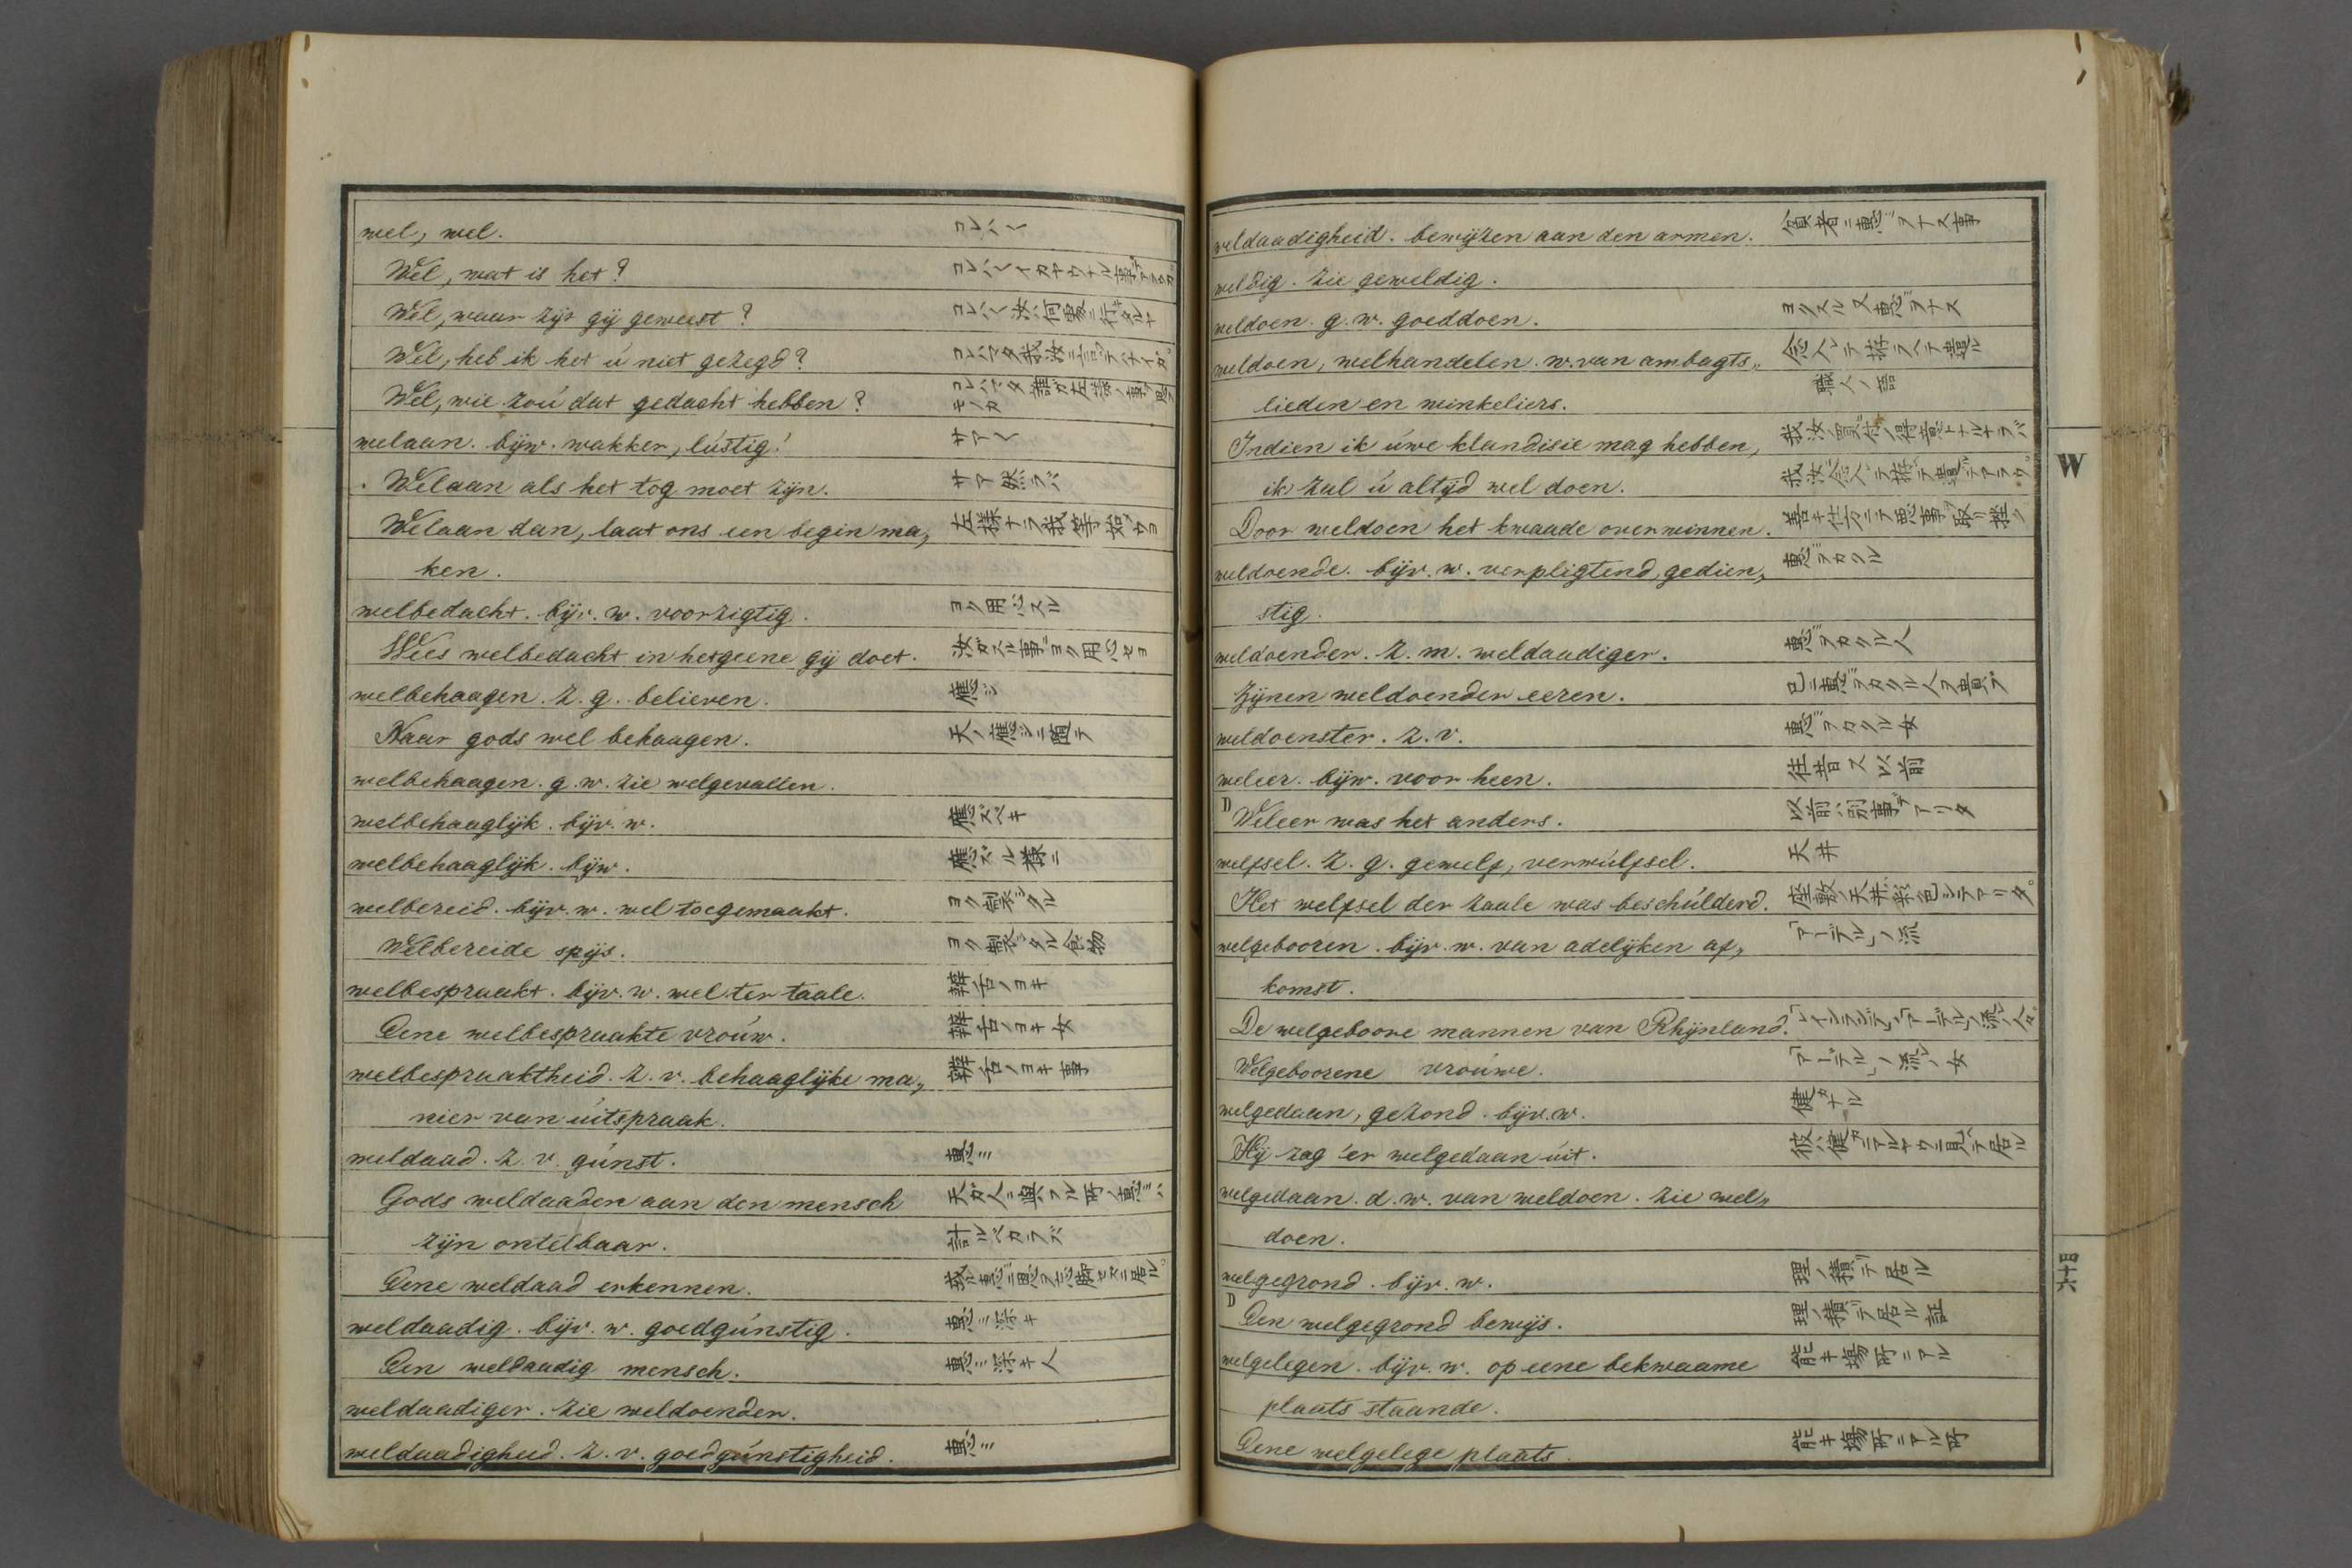 wel, wel. コレハ〱
Wel, wat is het?
Wel, waar zijt gij geweest?
Wel, heb ik het ú niet gezegd?
Wel, wie zoú dat gedacht hebben?
welaan. bijw. wakker, lústig! サア〱
Welaan als het tog moet zijn. サア然ラバ
Welaan dan, laat ons een begin ma„
ken.
welbedacht. bijv. w. voorzigtig. ヨク用心スル
Wees welbedacht in hetgeene gij doet.
welbehaagen. z. g. believen. 應シ
Naar gods wel behaagen.
welbehaagen. g. w. zie welgevallen.
welbehaaglijk. bijv. w. 應ズベキ
welbehaaglijk. bijw. 應ズル様ニ
welbereid. bijv. w. wel toegemaakt. ヨク製シタル
Welbereide spijs. ヨク製シタル食物
welbespraakt. bijv. w. wel ter taale. 辨舌ノヨキ
Eene welbespraakte vroúw. 辨舌ノヨキ女
welbespraaktheid. z. v. behaaglijke ma„ 辨舌ノヨキ事
nier van úitspraak.
weldaad. z. v. gúnst. 惠ミ
Gods weldaaden aan den mensch 天ガ人ニ與フル所ノ惠ミハ
zijn ontelbaar. 計ルベカラズ
Eene weldaad erkennen.
weldaadig. bijv. w. goedgúnstig. 惠ミ深キ
Een weldaadig mensch. 惠ミ深キ人
weldaadiger. zie weldoender.
weldaadigheid. z. v. goedgúnstigheid. 惠ミ
weldaadigheid. bewijzen aan den armen. 貧者ニ惠ミヲナス事
weldig. zie geweldig.
weldoen. g. w. goeddoen. ヨクスル又惠ミヲナス
weldoen, welhandelen. w. van ambagts„
lieden en winkeliers. 職人ノ語
Indien ik úwe klandisie mag hebben,
ik zal ú altijd wel doen.
Door weldoen het kwaade overwinnen.
weldoende. bijv. w. verpligtend, gedien„ 惠ミヲカクル
stig.
weldoender. z. m. weldaadiger. 惠ミヲカクル人
Zijnen weldoender eeren. 己ニ惠ミヲカクル人ヲ貴ブ
weldoenster. z. v. 惠ミヲカクル女
weleer. bijw. voor heen. 往昔又以前
D Weleer was het anders. 以前ハ別事デアリタ
welfsel. z. g. gewelf, verwúlfsel. 天井
Het welfsel der zaale was beschúlderd. 座敷ノ天井ハ彩色シテアリタ。
welgebooren. bijv. w. van adelijken af„ 「アーデル」ノ流
komst.
De welgeboore mannen van Rhijnland.
Welgeboorene vroúwe. 「アーデル」ノ流ノ女
welgedaan, gezond. bijv. w. 健カナル
Hij zag 'er welgedaan úit.
welgedaan. d. w. van weldoen. zie wel„
doen.
welgegrond. bijv. w. 理ノ積ンデ居ル
D Een welgegrond bewijs. 理ノ積ンデ居ル証
welgelegen. bijv. w. op eene bekwaame 能キ場所ニアル
plaats staande.
Eene welgelege plaats. 能キ場所ニアル所
W